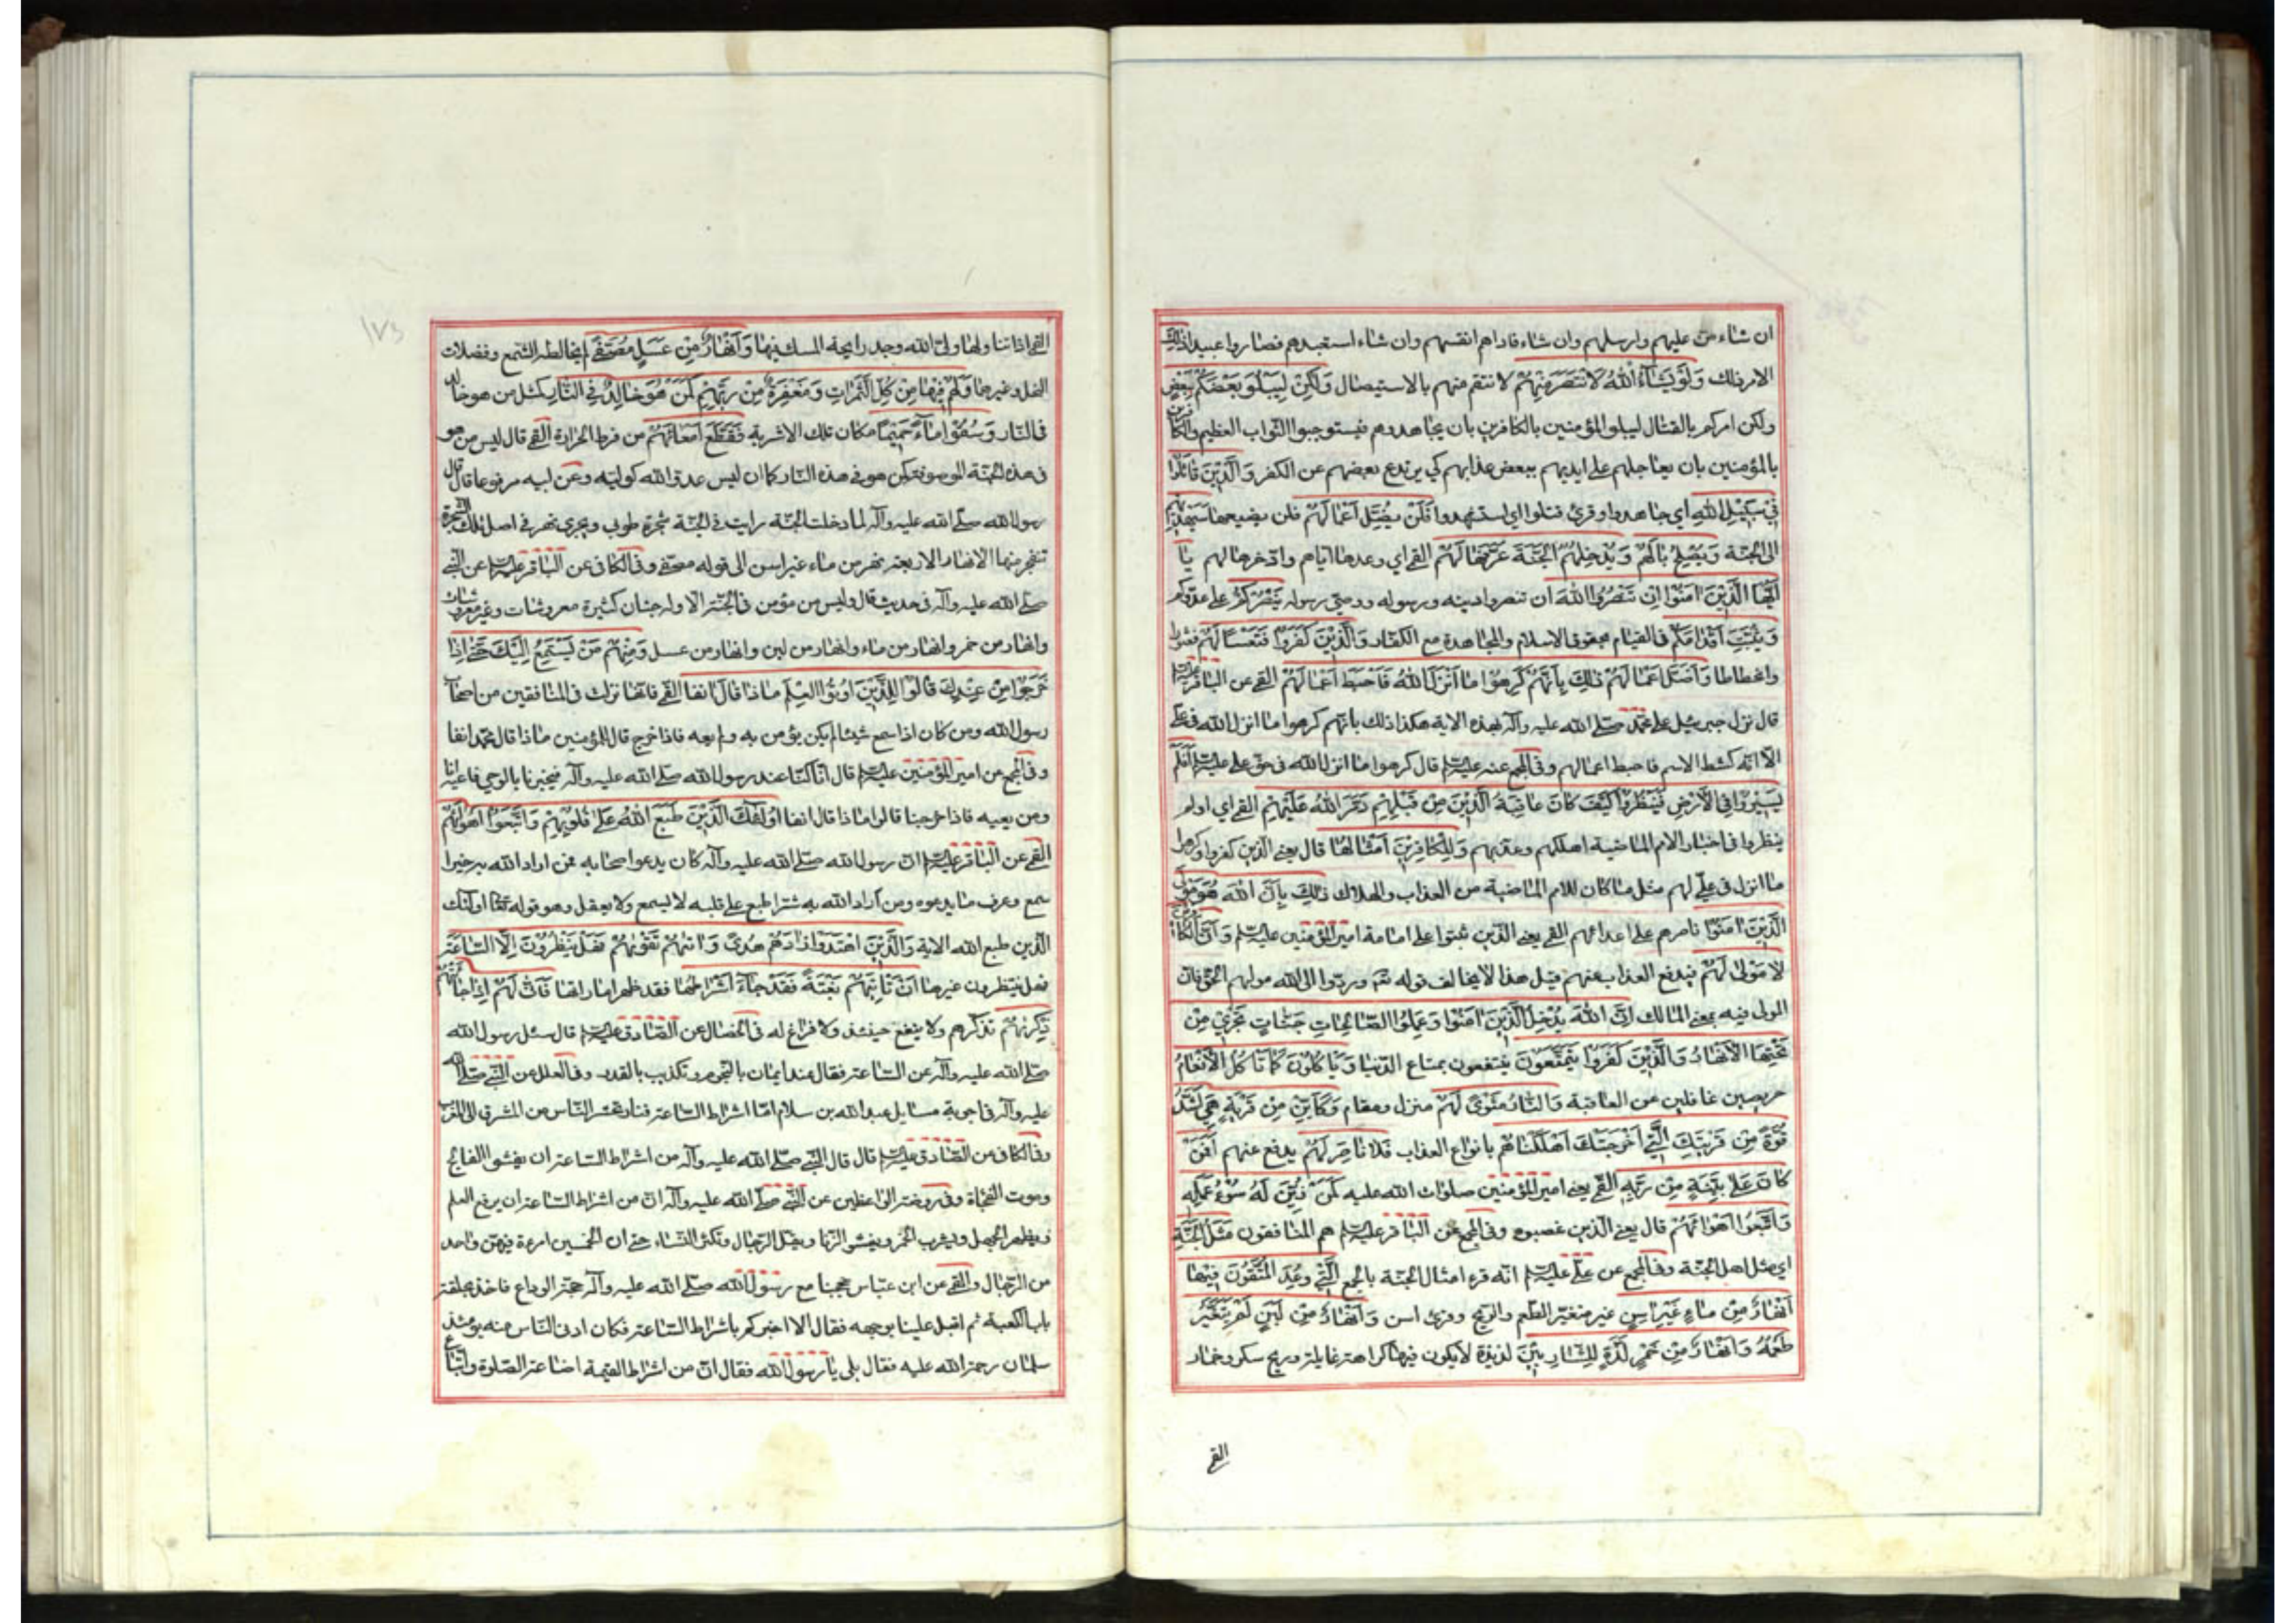 ان شاء من عليهم وارسلهم وان شاء فاداهم انفسهم وان شاء استعبدهم فصاروا عبيدا ذٰلِكَ
الامر ذلك وَلَوْ يَشَاءُ اللهُ لَانْتَصَرَ مِنْهُمْ لانتقم منهم بالاستيصال وَلٰكِنْ لِيَبْلُوَ بَعْضَكُمْ بِبَعْضٍ
ولكن امركم بالقتال ليبلو المؤمنين بالكافرين بان يجاهدوهم فيستوجبوا الثواب العظيم والكافرين
بالمؤمنين بان يعاجلهم على ايديهم ببعض عذابهم كي يرتدع بعضهم عن الكفر وَالَّذِينَ قَاتَلُوا
فِي سَبِيلِ اللهِ اي جاهدوا وقرئ قتلوا اي استشهدوا فَلَنْ يُضِلَّ اَعْمَالَهُمْ فلن يضيعها سَيَهْدِيهِمْ
الى الجنة وَيُصْلِحُ بَالَهُمْ وَيُدْخِلُهُمُ الْجَنَّةَ عَرَّفَهَا لَهُمْ القمي اي وعدها اياهم وادخرها لهم يَا
اَيُّهَا الَّذِينَ اٰمَنُوا اِنْ تَنْصُرُوا اللهَ ان تنصروا دينه ورسوله ووصي رسوله يَنْصُرْكُمْ على عدوكم
وَيُثَبِّتْ اَقْدَامَكُمْ في القيام بحقوق الاسلام والمجاهدة مع الكفار وَالَّذِينَ كَفَرُوا فَتَعْسًا لَهُمْ فعثورا
وانحطاطا وَاَضَلَّ اَعْمَالَهُمْ ذٰلِكَ بِاَنَّهُمْ كَرِهُوا مَا اَنْزَلَ اللهُ فَاَحْبَطَ اَعْمَالَهُمْ القمي عن الباقر عليه السلم
قال نزل جبرئيل على محمد صلى الله عليه وآله بهذه الاية هكذا ذلك بانهم كرهوا ما انزل الله في علي
الا انه كشط الاسم فاحبط اعمالهم وفي المجمع عنه عليه السلم قال كرهوا ما انزل الله في حق علي عليه السلم اَفَلَمْ
يَسِيرُوا فِي الْاَرْضِ فَيَنْظُرُوا كَيْفَ كَانَ عَاقِبَةُ الَّذِينَ مِنْ قَبْلِهِمْ دَمَّرَ اللهُ عَلَيْهِمْ القمي اي اولم
ينظروا في اخبار الامم الماضية اهلكهم وعذبهم وَلِلْكَافِرِينَ اَمْثَالُهَا قال يعني الذين كفروا وكرهوا
ما انزل في علي لهم مثل ما كان للامم الماضية من العذاب والهلاك ذٰلِكَ بِاَنَّ اللهَ هُوَ مَوْلَى
الَّذِينَ اٰمَنُوا ناصرهم على اعدائهم القمي يعني الذين ثبتوا على امامة امير المؤمنين عليه السلم وَاَنَّ الْكَافِرِينَ
لَا مَوْلٰى لَهُمْ فيدفع العذاب عنهم قيل هذا لا يخالف قوله ثم وردوا الى الله موليهم الحق فان
المولى فيه بمعنى المالك اِنَّ اللهَ يُدْخِلُ الَّذِينَ اٰمَنُوا وَعَمِلُوا الصَّالِحَاتِ جَنَّاتٍ تَجْرِي مِنْ
تَحْتِهَا الْاَنْهَارُ وَالَّذِينَ كَفَرُوا يَتَمَتَّعُونَ ينتفعون بمتاع الدنيا وَيَاْكُلُونَ كَمَا تَاْكُلُ الْاَنْعَامُ
حريصين غافلين عن العاقبة وَالنَّارُ مَثْوًى لَهُمْ منزل ومقام وَكَاَيِّنْ مِنْ قَرْيَةٍ هِيَ اَشَدُّ
قُوَّةً مِنْ قَرْيَتِكَ الَّتِي اَخْرَجَتْكَ اَهْلَكْنَاهُمْ بانواع العذاب فَلَا نَاصِرَ لَهُمْ يدفع عنهم اَفَمَنْ
كَانَ عَلٰى بَيِّنَةٍ مِنْ رَبِّهِ القمي يعني امير المؤمنين صلوات الله عليه كَمَنْ زُيِّنَ لَهُ سُوءُ عَمَلِهِ
وَاتَّبَعُوا اَهْوَاءَهُمْ قال يعني الذين غصبوه وفي المجمع عن الباقر عليه السلم هم المنافقون مَثَلُ الْجَنَّةِ
اي مثل اهل الجنة وفي المجمع عن علي عليه السلم انه قرء امثال الجنة بالجمع الَّتِي وُعِدَ الْمُتَّقُونَ فِيهَا
اَنْهَارٌ مِنْ مَاءٍ غَيْرِ اٰسِنٍ غير متغير الطعم والريح وقرئ اسن وَاَنْهَارٌ مِنْ لَبَنٍ لَمْ يَتَغَيَّرْ
طَعْمُهُ وَاَنْهَارٌ مِنْ خَمْرٍ لَذَّةٍ لِلشَّارِبِينَ لذيذة لا يكون فيها كراهة غايلة وريح سكر وخمار
القمي
١٧٣
القمي اذا تناولها ولي الله وجد رايحة المسك فيها وَاَنْهَارٌ مِنْ عَسَلٍ مُصَفًّى لم يخالطه الشمع وفضلات
النحل وغيرها وَلَهُمْ فِيهَا مِنْ كُلِّ الثَّمَرَاتِ وَمَغْفِرَةٌ مِنْ رَبِّهِمْ كَمَنْ هُوَ خَالِدٌ فِي النَّارِ كمثل من هو خالد
في النار وَسُقُوا مَاءً حَمِيمًا مكان تلك الاشربة فَقَطَّعَ اَمْعَاءَهُمْ من فرط الحرارة القمي قال ليس من هو
في هذه الجنة الموصوفة كمن هو في هذه النار كما ان ليس عدو الله كوليه وعن ابيه مرفوعا قال قال
رسول الله صلى الله عليه وآله لما دخلت الجنة رايت في الجنة شجرة طوبى ويجري نهر في اصل تلك الشجرة
تنفجر منها الانهار الاربعة نهر من ماء غير اسن الى قوله مصفى وفي الكافي عن الباقر عليه السلم عن النبي
صلى الله عليه وآله في حديث قال وليس من مؤمن في الجنة الا وله جنان كثيرة معروشات وغير معروشات
وانهار من خمر وانهار من ماء وانهار من لبن وانهار من عسل وَمِنْهُمْ مَنْ يَسْتَمِعُ اِلَيْكَ حَتّٰى اِذَا
خَرَجُوا مِنْ عِنْدِكَ قَالُوا لِلَّذِينَ اُوتُوا الْعِلْمَ مَاذَا قَالَ اٰنِفًا القمي فانها نزلت في المنافقين من اصحاب
رسول الله ومن كان اذا سمع شيئا لم يكن يؤمن به ولم يعه فاذا خرج قال للمؤمنين ماذا قال محمد انفا
وفي المجمع عن امير المؤمنين عليه السلم قال انا كنا عند رسول الله صلى الله عليه وآله فيخبرنا بالوحي فاعيه انا
ومن يعيه فاذا خرجنا قالوا ماذا قال انفا اُولٰئِكَ الَّذِينَ طَبَعَ اللهُ عَلٰى قُلُوبِهِمْ وَاتَّبَعُوا اَهْوَاءَهُمْ
القمي عن الباقر عليه السلم ان رسول الله صلى الله عليه وآله كان يدعو اصحابه فمن اراد الله به خيرا
سمع وعرف ما يدعوه ومن اراد الله به شرا طبع على قلبه لا يسمع ولا يعقل وهو قوله تعالى اولئك
الذين طبع الله الاية وَالَّذِينَ اهْتَدَوْا زَادَهُمْ هُدًى وَاٰتٰيهُمْ تَقْوٰيهُمْ فَهَلْ يَنْظُرُونَ اِلَّا السَّاعَةَ
فهل ينتظرون غيرها اَنْ تَاْتِيَهُمْ بَغْتَةً فَقَدْ جَاءَ اَشْرَاطُهَا فقد ظهر اماراتها فَاَنّٰى لَهُمْ اِذَا جَاءَتْهُمْ
ذِكْرٰيهُمْ تذكرهم ولا ينفع حينئذ ولا فراغ له في الخصال عن الصادق عليه السلم قال سئل رسول الله
صلى الله عليه وآله عن الساعة فقال عند ايمان بالنجوم وتكذيب بالقدر وفي العلل عن النبي صلى الله
عليه وآله في اجوبة مسايل عبد الله بن سلام اما اشراط الساعة فنار تحشر الناس من المشرق الى المغرب
وفي الكافي عن الصادق عليه السلم قال قال النبي صلى الله عليه وآله من اشراط الساعة ان يفشو الفالج
وموت الفجاة وفي روضة الواعظين عن النبي صلى الله عليه وآله ان من اشراط الساعة ان يرفع العلم
ويظهر الجهل ويشرب الخمر ويفشو الزنا ويقل الرجال وتكثر النساء حتى ان الخمسين امرءة فيهن واحد
من الرجال والقمي عن ابن عباس حججنا مع رسول الله صلى الله عليه وآله حجة الوداع فاخذ بحلقة
باب الكعبة ثم اقبل علينا بوجهه فقال الا اخبركم باشراط الساعة فكان ادنى الناس منه يومئذ
سلمان رحمة الله عليه فقال بلى يا رسول الله فقال ان من اشراط القيمة اضاعة الصلوة واتباع